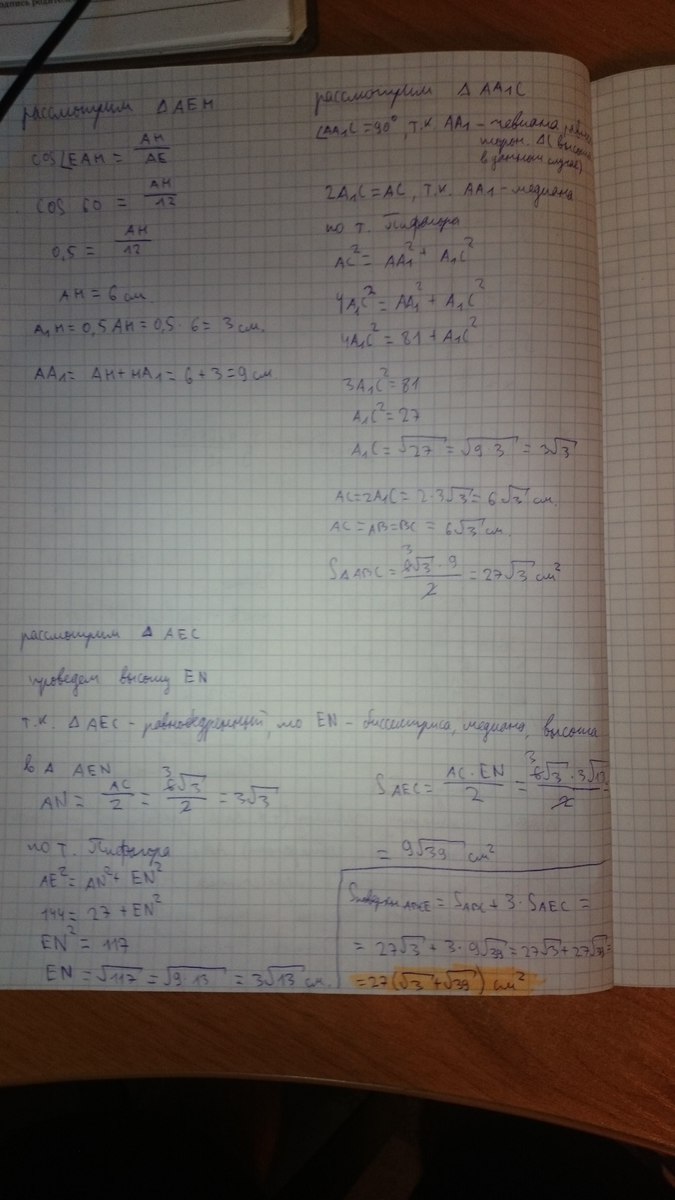 рассмотрим Δ AEH
cos∠EAH = AH/AE
cos 60 = AH/12
0,5 = AH/12
AH = 6 см.
A₁H = 0,5 AH = 0,5 · 6 = 3 см.
AA₁ = AH + HA₁ = 6 + 3 = 9 см.
рассмотрим Δ AA₁C
∠AA₁C = 90°, т.к. AA₁ -
сторон. Δ (высота
в данном случае)
2A₁C = AC, т.к. AA₁ - медиана
по т. Пифагора
AC² = AA₁² + A₁C²
4A₁C² = AA₁² + A₁C²
4A₁C² = 81 + A₁C²
3A₁C² = 81
A₁C² = 27
A₁C = √27 = √9·3 = 3√3
AC = 2A₁C = 2·3√3 = 6√3 см.
AC = AB = BC = 6√3 см.
SΔABC = 6√3 · 9 / 2 = 27√3 см²
рассмотрим Δ AEC
проведем высоту EN
т.к. Δ AEC - равнобедренный, то EN - биссектриса, медиана, высота
в Δ AEN
AN = AC/2 = 6√3/2 = 3√3
по т. Пифагора
AE² = AN² + EN²
144 = 27 + EN²
EN² = 117
EN = √117 = √9·13 = 3√13 см.
S AEC = AC · EN / 2 = 6√3 · 3√13 / 2 =
= 9√39 см²
= S ABC + 3 · S AEC =
= 27√3 + 3 · 9√39 = 27√3 + 27√39 =
= 27(√3 + √39) см²